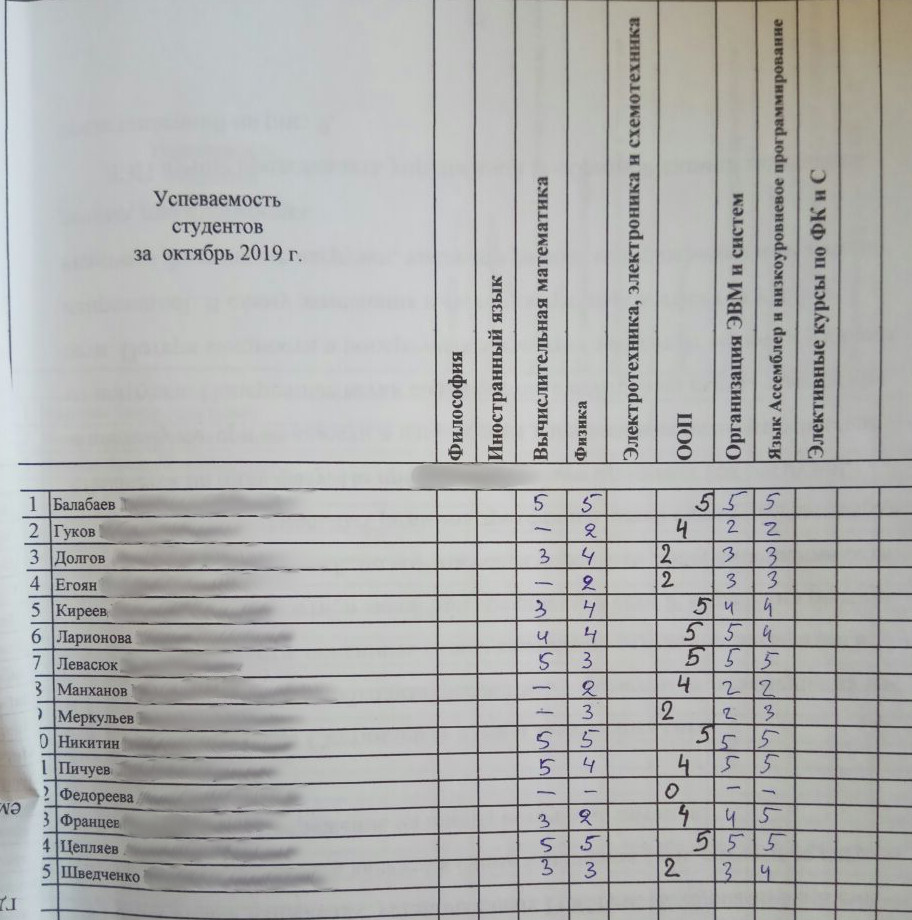 Успеваемость
студентов
за октябрь 2019 г.
Философия
Иностранный язык
Вычислительная математика
Физика
Электротехника, электроника и схемотехника
ООП
Организация ЭВМ и систем
Язык Ассемблер и низкоуровневое программирование
Элективные курсы по ФК и С
1 Балабаев 5 5 5 5 5
2 Гуков – 2 4 2 2
3 Долгов 3 4 2 3 3
4 Егоян – 2 2 3 3
5 Киреев 3 4 5 4 4
6 Ларионова 4 4 5 5 4
7 Левасюк 5 3 5 5 5
8 Манханов – 2 4 2 2
Меркульев – 3 2 2 3
0 Никитин 5 5 5 5 5
1 Пичуев 5 4 4 5 5
2 Федореева – – 0 – –
3 Францев 3 2 4 4 5
4 Цепляев 5 5 5 5 5
5 Шведченко 3 3 2 3 4